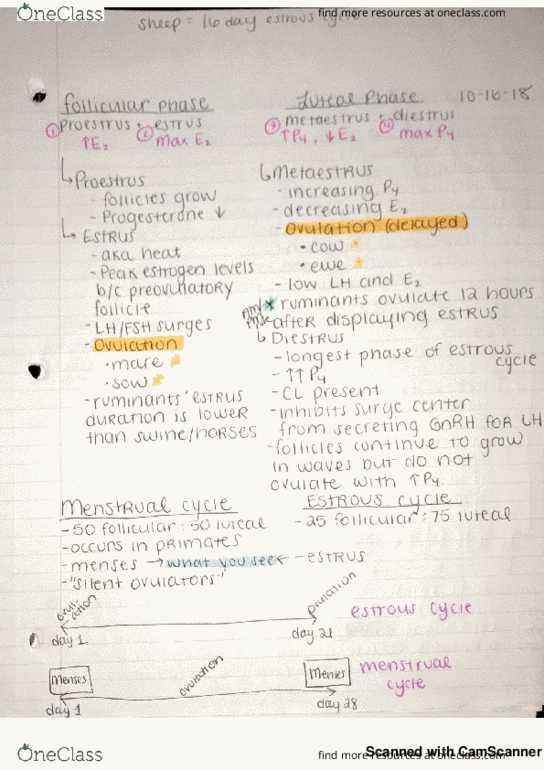 OneClass
find more resources at oneclass.com
sheep = 16 day estrous
10-16-18
Follicular phase
① Proestrus + ② estrus
↑E₂ max E₂
↳ Proestrus
- follicles grow
- Progesterone ↓
↳ Estrus
- aka heat
- Peak estrogen levels
b/c preovulatory
follicle
- LH/FSH surges
- Ovulation
• mare
• sow
- ruminants' estrus
duration is lower
than swine/horses
Luteal Phase
③ metaestrus + ④ diestrus
↑P₄, ↓E₂ max P₄
↳ Metaestrus
- increasing P₄
- decreasing E₂
- Ovulation (delayed)
• cow
• ewe
- low LH and E₂
* ruminants ovulate 12 hours
after displaying estrus
↳ Diestrus
- longest phase of estrous
cycle
- ↑↑P₄
- CL present
- inhibits surge center
from secreting GnRH for LH
- follicles continue to grow
in waves but do not
ovulate with ↑P₄.
Menstrual cycle
- 50 follicular : 50 luteal
- occurs in primates
- menses → what you see ← - estrus
- "silent ovulators"
Estrous cycle
- 25 follicular : 75 luteal
ovulation ovulation
estrous cycle
day 1 day 21
Menses ovulation Menses
menstrual
cycle
day 1 day 28
OneClass
find more resources at oneclass.com
Scanned with CamScanner